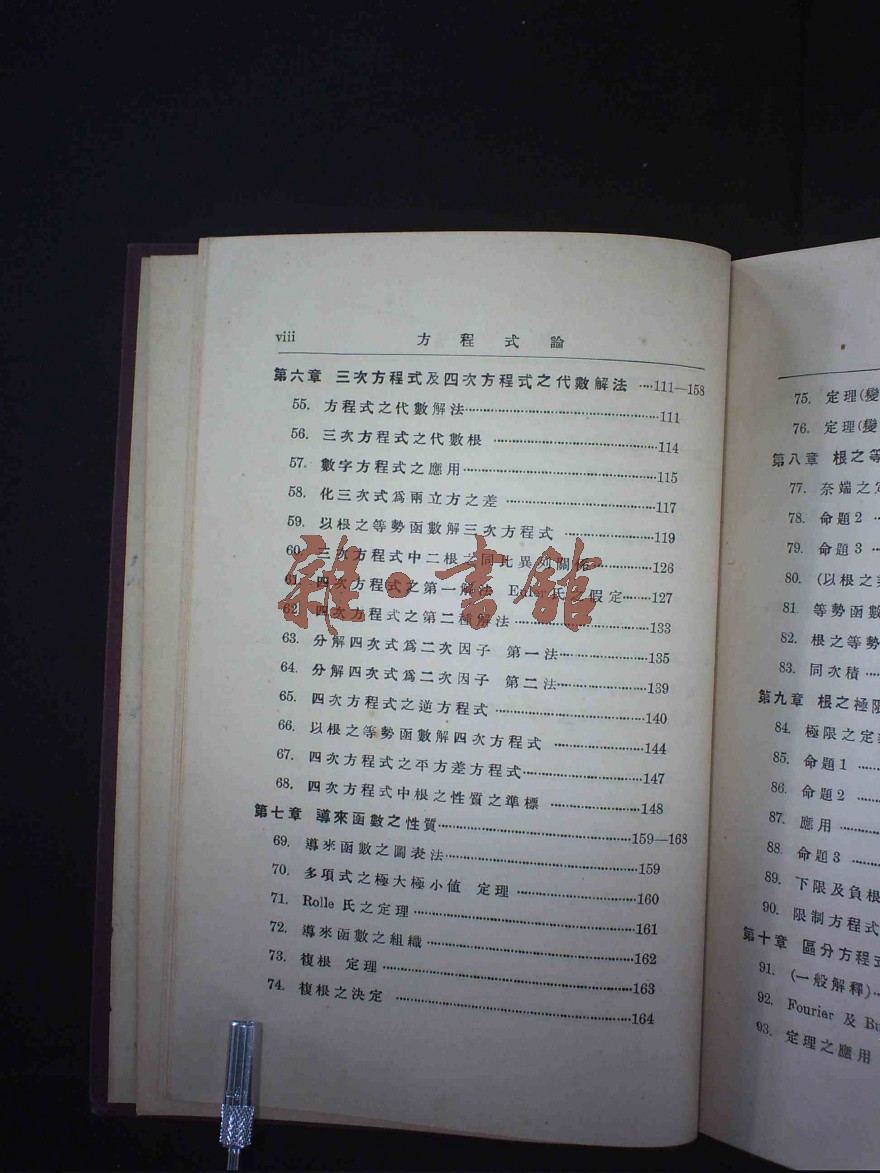 viii 方程式論
第六章 三次方程式及四次方程式之代數解法 ····111—158
55. 方程式之代數解法····111
56. 三次方程式之代數根 ····114
57. 數字方程式之應用····115
58. 化三次式爲兩立方之差 ····117
59. 以根之等勢函數解三次方程式 ····119
60. 三次方程式中二根之同比異列關係····126
61. 四次方程式之第一解法 Euler氏之假定····127
62. 四次方程式之第二種解法····133
63. 分解四次式爲二次因子 第一法····135
64. 分解四次式爲二次因子 第二法····139
65. 四次方程式之逆方程式 ····140
66. 以根之等勢函數解四次方程式 ····144
67. 四次方程式之平方差方程式····147
68. 四次方程式中根之性質之準標 ····148
第七章 導來函數之性質····159—168
69. 導來函數之圖表法····159
70. 多項式之極大極小値 定理 ····160
71. Rolle 氏之定理····161
72. 導來函數之組織····162
73. 複根 定理····163
74. 複根之決定 ····164
雜·書館
75. 定理(變
76. 定理(變
第八章 根之等
77. 奈端之
78. 命題2 ··
79. 命題3 ··
80. (以根之
81. 等勢函數
82. 根之等勢
83. 同次積····
第九章 根之極限
84. 極限之定
85. 命題1 ··
86. 命題2 ··
87. 應用 ····
88. 命題3 ··
89. 下限及負根
90. 限制方程式
第十章 區分方程式
91. (一般解釋)··
92. Fourier 及 Bu
93. 定理之應用